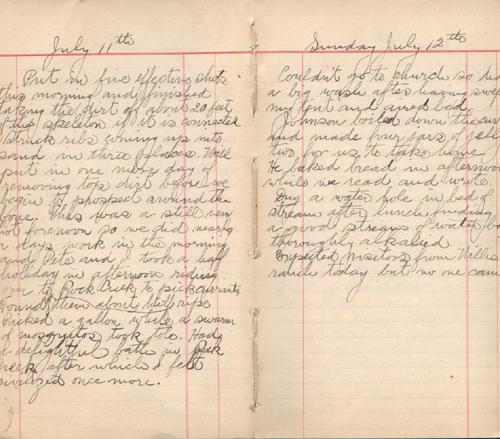 July 11th
Put in five effective shots
this morning and finished
taking the dirt off about 20 feet
of the skeleton if it is connected
Struck ribs coming up into
sand in three places. Will
put in one more day of
removing top dirt before we
begin to prospect around the
bone. This was a still very
hot forenoon so we did nearly
a days work in the morning
and Pete and I took a half
holiday in afternoon riding
over to Rock Creek to pick currants
Found them about half ripe
Picked a gallon while a swarm
of mosquitos took toll. Had
a delightful bath in Rock
Creek after which I felt
civilized once more.
Sunday July 12th
Couldn't go to church so did
a big wash after having swept
my tent and aired bed.
Johnson boiled down the
and made four jars of jelly
two for us to take home
He baked bread in afternoon
while we read and wrote.
Dug a water hole in bed of
stream after lunch finding
a good stream of water
thoroughly alkalied.
Expected visitors from Willis
ranch today but no one came